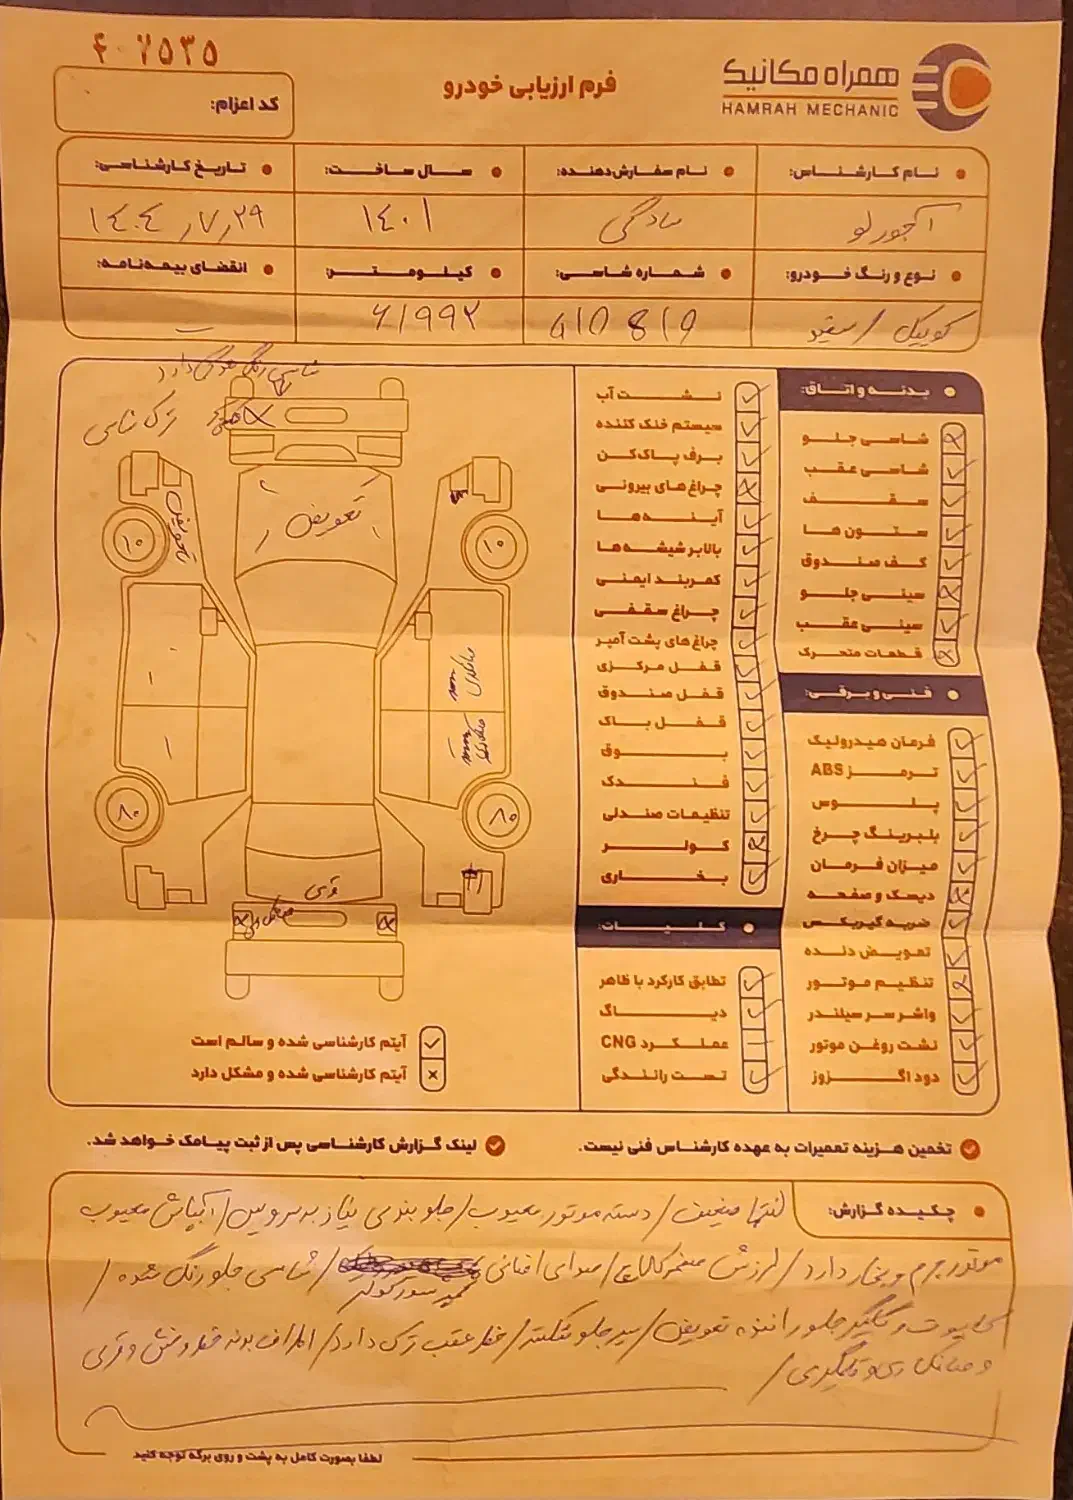 ۴۰۷۵۳۵
همراه مکانیک
HAMRAH MECHANIC
فرم ارزیابی خودرو
کد اعزام:
نام کارشناس:
نام سفارش‌دهنده:
سال ساخت:
تاریخ کارشناسی:
آجورلو
سادگی
۱۴۰۱
۱۴۰۴/۷/۲۹
نوع و رنگ خودرو:
شماره شاسی:
کیلومتر:
انقضای بیمه‌نامه:
کوییک / سفید
۶۱۹۹۲
بدنه و اتاق:
شاسی جلو
شاسی عقب
سقف
ستون ها
کف صندوق
سینی جلو
سینی عقب
قطعات متحرک
فنی و برقی:
فرمان هیدرولیک
ترمز ABS
پلوس
بلبرینگ چرخ
میزان فرمان
دیسک و صفحه
ضربه گیربکس
تعویض دنده
تنظیم موتور
واشر سر سیلندر
نشت روغن موتور
دود اگزوز
نشت آب
سیستم خنک کننده
برف پاک‌کن
چراغ های بیرونی
آینه ها
بالابر شیشه ها
کمربند ایمنی
چراغ سقفی
چراغ های پشت آمپر
قفل مرکزی
قفل صندوق
قفل باک
بوق
فندک
تنظیمات صندلی
کولر
بخاری
کلیات:
تطابق کارکرد با ظاهر
دیاگ
عملکرد CNG
تست رانندگی
شاسی رنگ خوردگی دارد
ترک شاسی
تعویض
تعویض
۱۰
۱۰
۸۰
۸۰
آیتم کارشناسی شده و سالم است
آیتم کارشناسی شده و مشکل دارد
تخمین هزینه تعمیرات به عهده کارشناس فنی نیست.
لینک گزارش کارشناسی پس از ثبت پیامک خواهد شد.
چکیده گزارش:
ضعیف / دسته موتور معیوب / جلوبندی نیاز به سرویس / آبپاش معیوب
موتور جرم و بخار دارد / لرزش صفحه کلاچ / صدای اضافی کمپرسور کولر / شاسی جلو رنگ شده /
کاپوت و گلگیر جلو راننده تعویض / سپر جلو شکسته / عقب ترک دارد / اطراف بدنه خط و خش و قری
و
لطفا بصورت کامل به پشت و روی برگه توجه کنید